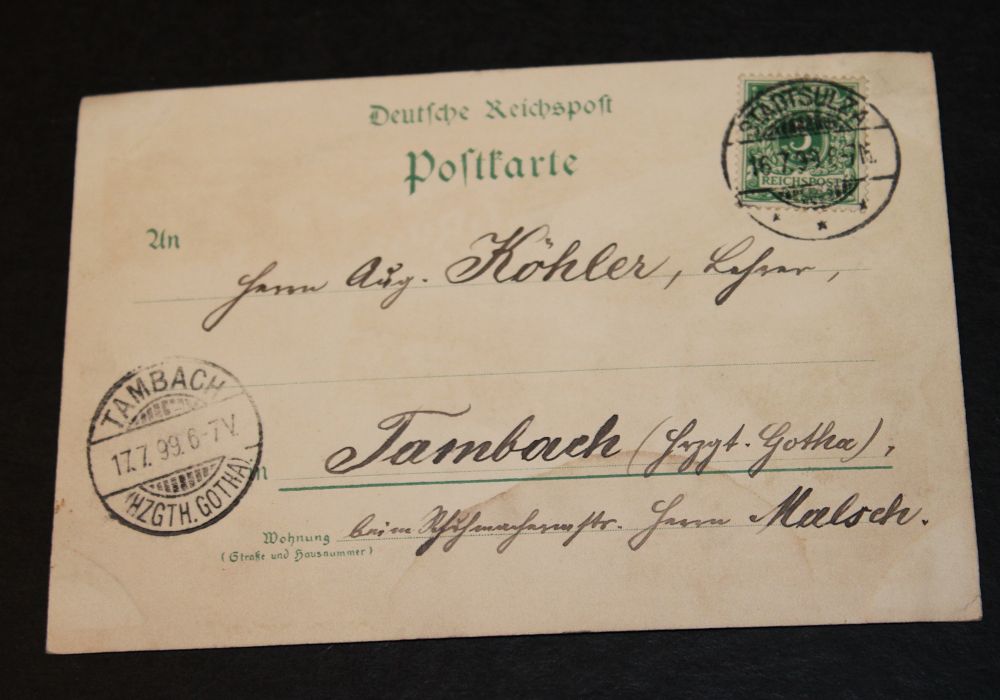 Deutsche Reichspost
Postkarte
STADTSULZA
16.7.99
5
REICHSPOST
An
Herrn Aug. Köhler, Lehrer,
TAMBACH
17.7.99.6-7V.
(HZGTH.GOTHA).
in
Tambach (Hrzgt. Gotha),
Wohnung
(Straße und Hausnummer)
beim Schuhmachermstr. Herrn Malsch.